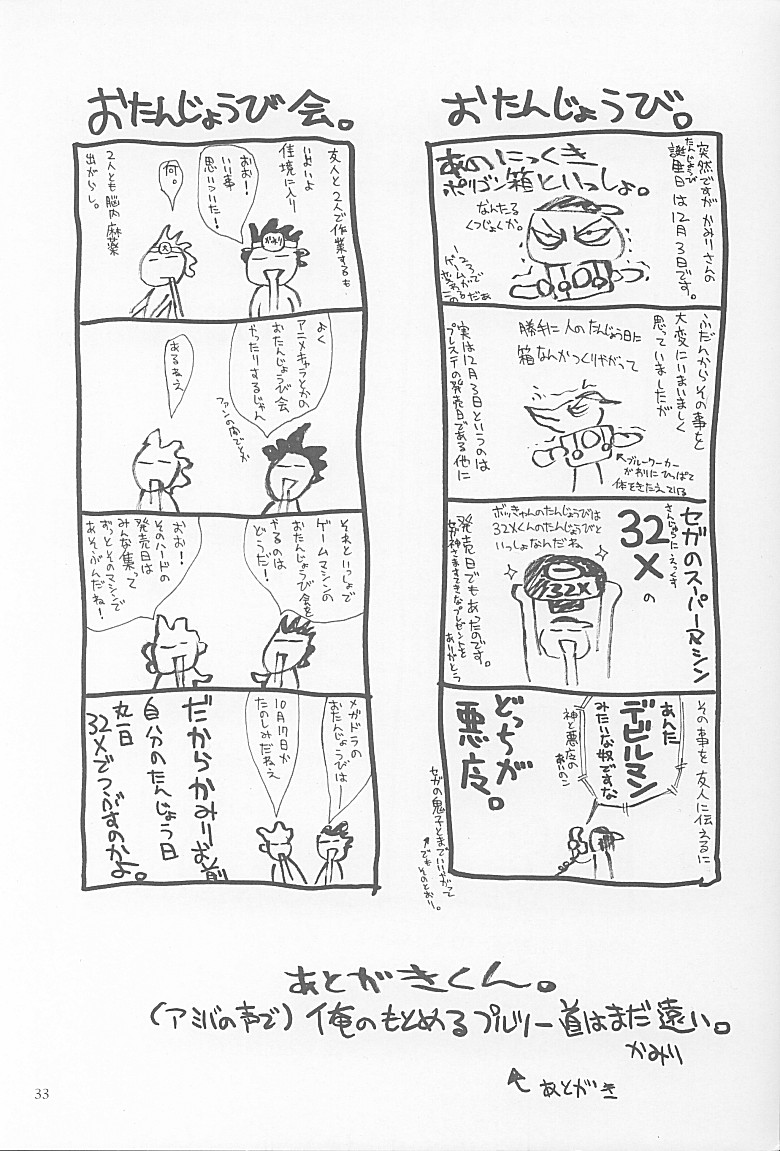 おたんじょうび。
突然ですが かみりさんの
たんじょうび
誕生日は12月3日です。
あのにっくき
ポリゴン箱といっしょ。
なんたる
くつじょくか。
ふだんからその事を
大変にいまいましく
思っていましたが
勝手に人のたんじょう日に
箱なんかつくりやがって
ブルーワーカー
がわりにひっぱって
体をきたえている
実は12月3日というのは
プレステの発売日である他に
セガのスーパーマシン
さんじゅうにえっくす
32X
の
ボッきゃんのたんじょうびは
32Xくんのたんじょうびと
いっしょなんだね
32X
発売日でもあったのです。
女神さますてきなプレゼントを
ありがとう
その事を友人に伝えるに
あんた
デビルマン
みたいな奴ですな
神と悪魔の
あいのこ
どっちが
悪よ。
セガの鬼子とまでいいやがって
でもそのとおり。
おたんじょうび会。
友人と2人で作業するも
いよいよ
佳境に入り
おお!
いい事
思いついた!
かみり
何。
2人とも脳内麻薬
出がらし。
よく
アニメキャラとかの
おたんじょうび会
やったりするじゃん
ファンの内でとか
あるねえ
それといっしょで
ゲームマシンの
おたんじょうび会を
やるのは
どうだ!
おお!
そのハードの
発売日は
みんな集って
ずっとそのマシンで
あそぶんだね!
メガドラの
おたんじょうびは
10月29日か
たのしみだねえ
だからかみりお前
自分のたんじょう日
丸一日
32Xでつぶすのかよ。
あとがきくん。
(アミバの声で)俺のもとめるプルツー道はまだ遠い。
かみり
あとがき
33